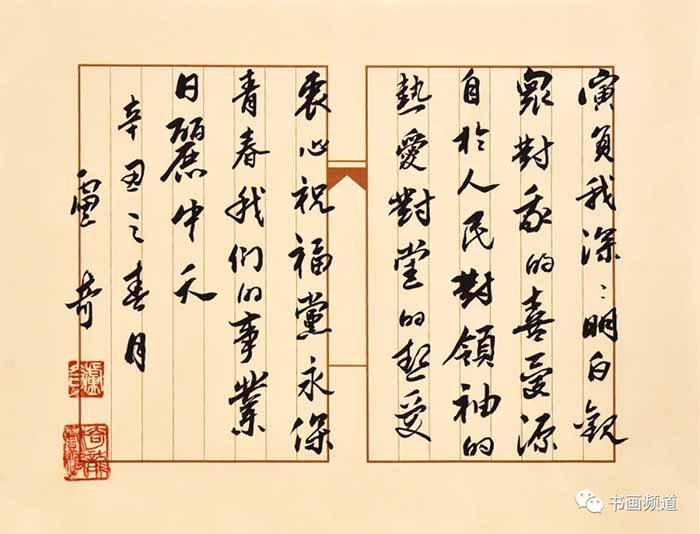 演員我深〻明白觀
眾對我的喜愛源
自於人民對領袖的
熱愛對黨的熱愛
衷心祝福黨永保
青春我们的事業
日麗中天
辛丑之春月
盧奇
书画频道